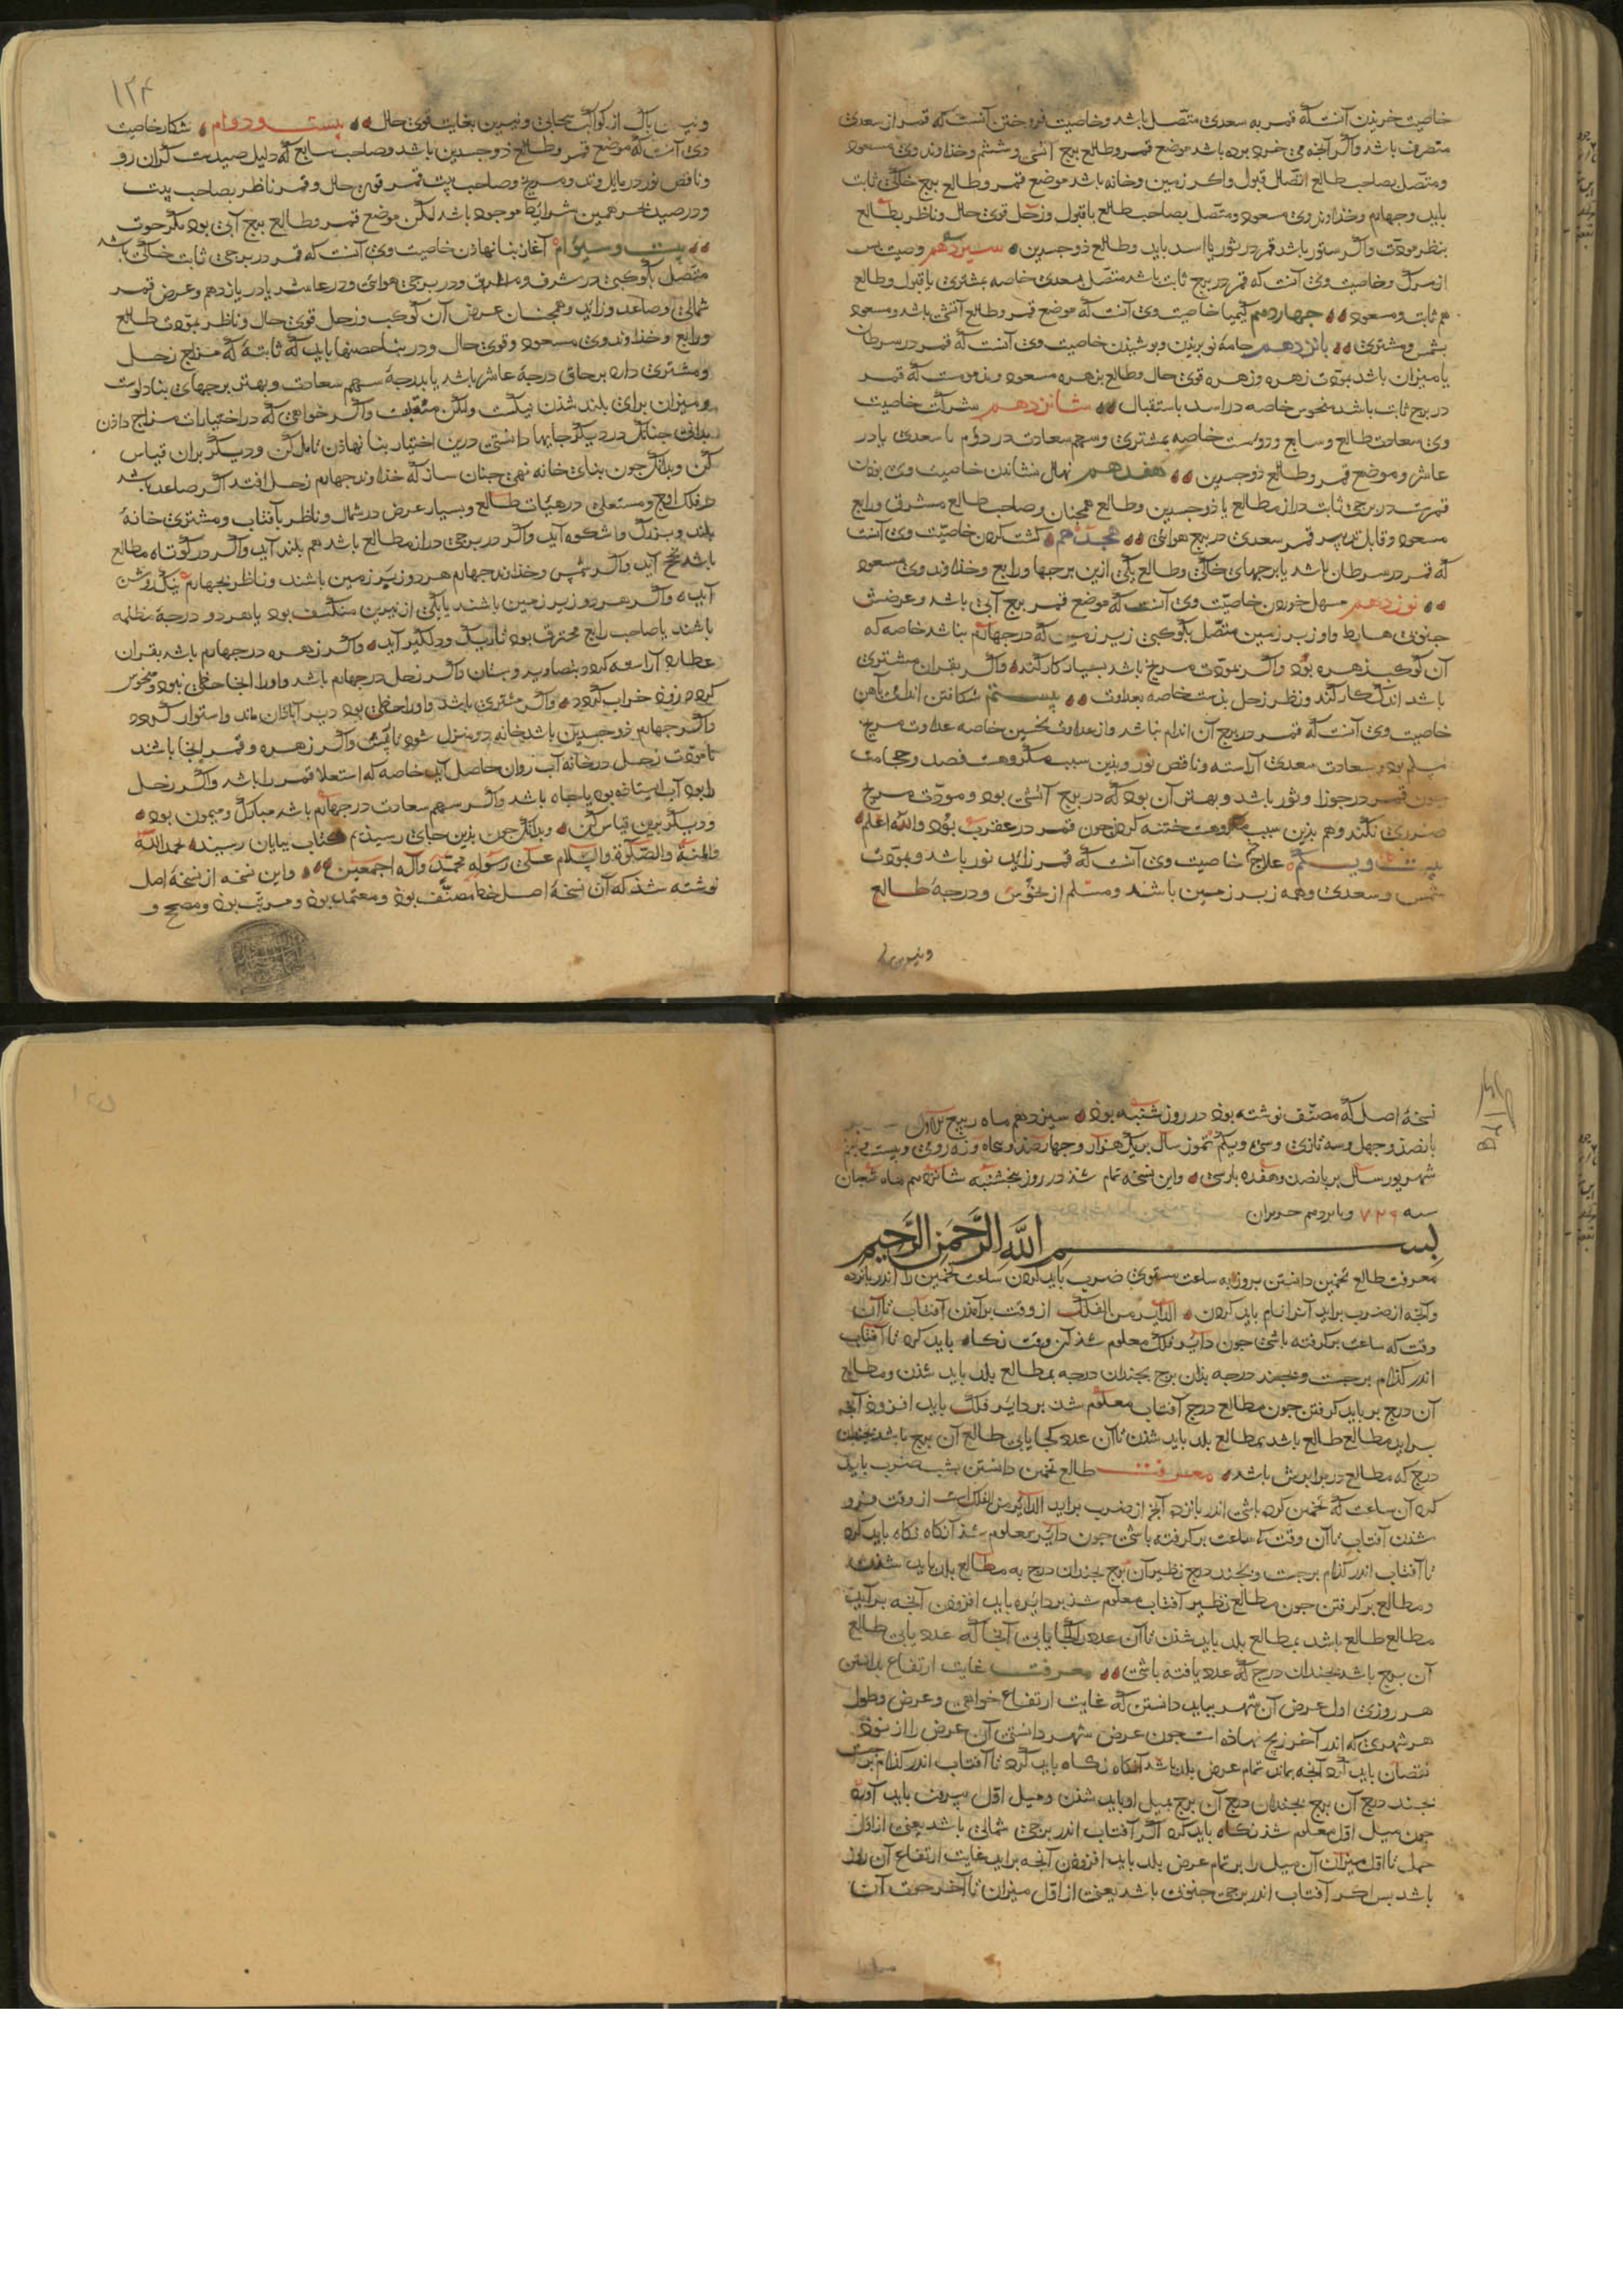 خاصیت خریدن آنست که قمر به سعدی متصل باشد و خاصیت فروختن آنست که قمر از سعدی
متصرف باشد واگر آنچه می خرد برده باشد موضع قمر وطالع برج انسی وششم وخداوند وی مسعود
ومتصل بصاحب طالع اتصال قبول واکر زمین وخانه باشد موضع قمر وطالع برج خاکی ثابت
باید وجهارم وخداوند وی مسعود ومتصل بصاحب طالع باقبول وزحل قوی حال وناظر بطالع
بنظر مودت واکر ستور باشد قمر در ثور یا اسد باید وطالع ذوجسدین سیزدهم وصیت
از مرک وخاصیت وی آنست که قمر در برج ثابت باشد متصل بسعدی خاصه بمشتری باقبول وطالع
هم ثابت ومسعود جهاردهم کیمیا خاصیت وی آنست که موضع قمر وطالع آتشی باشد ومسعود
بشمس ومشتری بانزدهم جامهٔ نو بریدن وبوشیذن خاصیت وی آنست که قمر در سرطان
یا میزان باشد بمودت زهره وزهره قوی حال وطالع بزهره مسعود که قمر
در برج ثابت باشد منحوس خاصه در اسد باستقبال شانزدهم شرکت خاصیت
وی سعادت طالع وسابع ودوست خاصه بمشتری وسهم سعادت در دوم با سعدی یا در
عاشر وموضع قمر وطالع ذوجسدین هفدهم نهال نشاندن خاصیت وی بودن
قمرست در برجی ثابت دراز مطالع یا ذوجسدین وطالع همجنان وصاحب طالع مشرق ورابع
مسعود وقابل تدبیر قمر سعدی در برج هوائی هجدهم کشت کردن خاصیت وی آنست
که قمر در سرطان باشد یا برجهای خاکی وطالع یکی ازین برجها ورابع وخداوند وی مسعود
نوزدهم مسهل خوردن خاصیت وی آنست که موضع قمر برج آبی باشد وعرضش
جنوبی هابط واو زیر زمین متصل بکوکبی زیر زمین که در جهارم نباشد خاصه که
آن کوکب زهره بود واگر بمودت مریخ باشد بسیار کار کند واگر بقران مشتری
باشد اندک کار کند ونظر زحل بدست خاصه بعداوت بیستم شکافتن اندام بآهن
خاصیت وی آنست که قمر در برج آن اندام نباشد واز عداوت نحسین خاصه عداوت مریخ
مسلم بود وبسعادت سعدی آراسته وناقص نور وبذین سبب مکروهست فصد وحجامت
جون قمر در جوزا وثور باشد وبهتر آن بود که در برج آتشی بود ومودت مریخ
ضرری نکند وهم بذین سبب مکروهست ختنه کردن جون قمر در عقرب بود والله اعلم
بیست ویکم علاج خاصیت وی آنست که قمر زاید نور باشد وبمودت
شمس وسعدی وهمه زیر زمین باشند ومسلم از نحوس ودرجهٔ طالع
۱۲۴
ونیرین باک از کواکب سحابی ونیرین بغایت قوی حال بیست ودوم شکار خاصیت
وی آنست که موضع قمر وطالع ذوجسدین باشد وصاحب سابع که دلیل صیدست کران رو
وناقص نور در مایل وتد ومریخ وصاحب بیت قمر قوی حال وقمر ناظر بصاحب بیت
ودر صید بحر همین شرایط موجود باشد لکن موضع قمر وطالع برج آبی بود مکر حوت
بیست وسیوم آغاز بنا نهاذن خاصیت وی آنست که قمر در برجی ثابت خاکی باشد
متصل بکوکبی در شرف ومشرق ودر برجی هوائی ودر عاشر یا در یازدهم وعرض قمر
شمالی وصاعد وزاید وهمجنان عرض آن کوکب وزحل قوی حال وناظر بمودت طالع
ورابع وخداوند وی مسعود وقوی حال ودر بنا حصنها باید که ثابتهٔ که مزاج زحل
ومشتری دارد بر حاق درجهٔ عاشر باشد یا بدرجهٔ سهم سعادت وبهتر برجهای بنا دلوست
ومیزان برای بلند شدن نیکست ولکن منقلبست واکر خواهی که در اختیارات مزاج داذن
بدانی جنانک در دیکر جایها دانستی درین اختیار بنا نهاذن تامل کن ودیکر بران قیاس
کن وبدانک جون بنای خانه نهی جنان ساز که خداوند جهارم زحل افتد اکر صاعد باشد
در فلک اوج ومستعلی در هیئات طالع وبسیار عرض در شمال وناظر بآفتاب ومشتری خانهٔ
بلند وبزرک وباشکوه آید واکر در برجی دراز مطالع باشد هم بلند آید واکر در کوتاه مطالع
باشد آید واکر شمس وخداوند جهارم هر دو زبر زمین باشند وناظر بجهارم نیک روشن
آید واکر هر دو زیر زمین باشند یا یکی از نیرین منکسف بود یا هر دو درجهٔ مظلمه
باشند یا صاحب رابع محترق بود تاریک ودلکیر آید واکر زهره در جهارم باشد بقران
عطارد آراسته کردد بتصاویر وبستان واکر زحل در جهارم باشد واورا آنجا حظی نبود ومنحوس
کردد زود خراب کردد واکر مشتری باشد واورا حظی بود دیر آباذان ماند واستوار کردد
واکر جهارم ذوجسدین باشد خانه دو منزل شود یا بیش واکر زهره وقمر آنجا باشند
بامودت زحل در خانه آب روان حاصل آید خاصه که استعلا قمر را باشد واکر زحل
را بود آب ایستاذه بود یا جاه باشد واکر سهم سعادت در جهارم باشد مبارک ومیمون بود
ودیکر برین قیاس کن وبدانک جون بذین جای رسیذیم کتاب ببایان رسید الحمدلله
والمنة والصلوة والسلام علی رسوله محمد وآله اجمعین واین نسخه از نسخهٔ اصل
نوشته شذ که آن نسخهٔ اصل خط مصنف بوذ ومعتمد بوذ ومرتب بوذ ومصحح و
نسخهٔ اصل که مصنف نوشته بوذ در روز شنبه بوذ سیزدهم ماه ربیع الاول
بانصذ وجهل وسه تازی وسی ویکم تموز سال بر یک هزار وجهارصذ وبنجاه ونه رومی وبیست وبنجم
شهریور سال بر بانصد وهفده بارسی واین نسخه تمام شذ در روز بنجشنبه شانزدهم ماه شعبان
سنه ۷۲۶ وبانزدهم حزیران
بسم الله الرحمن الرحیم
معرفت طالع تخمین دانستن بروز به ساعت مستوی ضرب باید کردن ساعت تخمین را اندر بانزده
وآنجه از ضرب براید آنرا نام باید کردن الدایر من الفلک از وقت برآمدن آفتاب تا آن
وقت که ساعت برکرفته باشی جون دایر فلک معلوم شذ آن وقت نکاه باید کرد تا آفتاب
اندر کذام برجست وبجند درجه بذان برج بجندان درجه بمطالع بلد باید شدن ومطالع
آن درج بر باید کرفتن جون مطالع درج آفتاب معلوم شد بر دایر فلک باید افزود آنجه
براید مطالع طالع باشد بمطالع بلد باید شذن تا آن عدد کجا یابی طالع آن برج باشد بجندان
درج که مطالع در برابرش باشد معرفت طالع تخمین دانستن بشب ضرب باید
کرد آن ساعت که تخمین کرده باشی اندر بانزده آنج از ضرب براید الدایر من الفلک است از وقت فرو
شدن آفتاب تا آن وقت که ساعت برکرفته باشی جون دایر معلوم شذ آنکاه نکاه باید کرد
تا آفتاب اندر کذام برجست وبجند درج نظیر آن برج بجندان درج به مطالع بلد باید شدن
ومطالع بر کرفتن جون مطالع نظیر آفتاب معلوم شذ بر دایره باید افزوذن آنجه براید
مطالع طالع باشد بمطالع بلد باید شذن تا آن عدد کجا یابی آنجا که عدد یابی طالع
آن برج باشد بجندان درج که عدد یافته باشی معرفت غایت ارتفاع بدانستن
هر روزی اول عرض آن شهر بباید دانستن که غایت ارتفاع خواهی وعرض وطول
هر شهری که اندر آخر زیج نهاذه است جون عرض شهر دانستی آن عرض را از نوذ
نقصان باید کرد آنجه بماند تمام عرض بلد باشد آنکاه نکاه باید کرد تا آفتاب اندر کذام برجست
بجند درج آن برج بجندان درج آن برج بمیل او باید شذن ومیل اول بیرون باید آورد
جون میل اول معلوم شذ نکاه باید کرد اکر آفتاب اندر برجی شمالی باشد یعنی از اول
حمل تا اول میزان آن میل را بر تمام عرض بلد باید افزوذن آنجه براید غایت ارتفاع آن روز
باشد بس اکر آفتاب اندر برجی جنوبی باشد یعنی از اول میزان تا آخر حوت آن